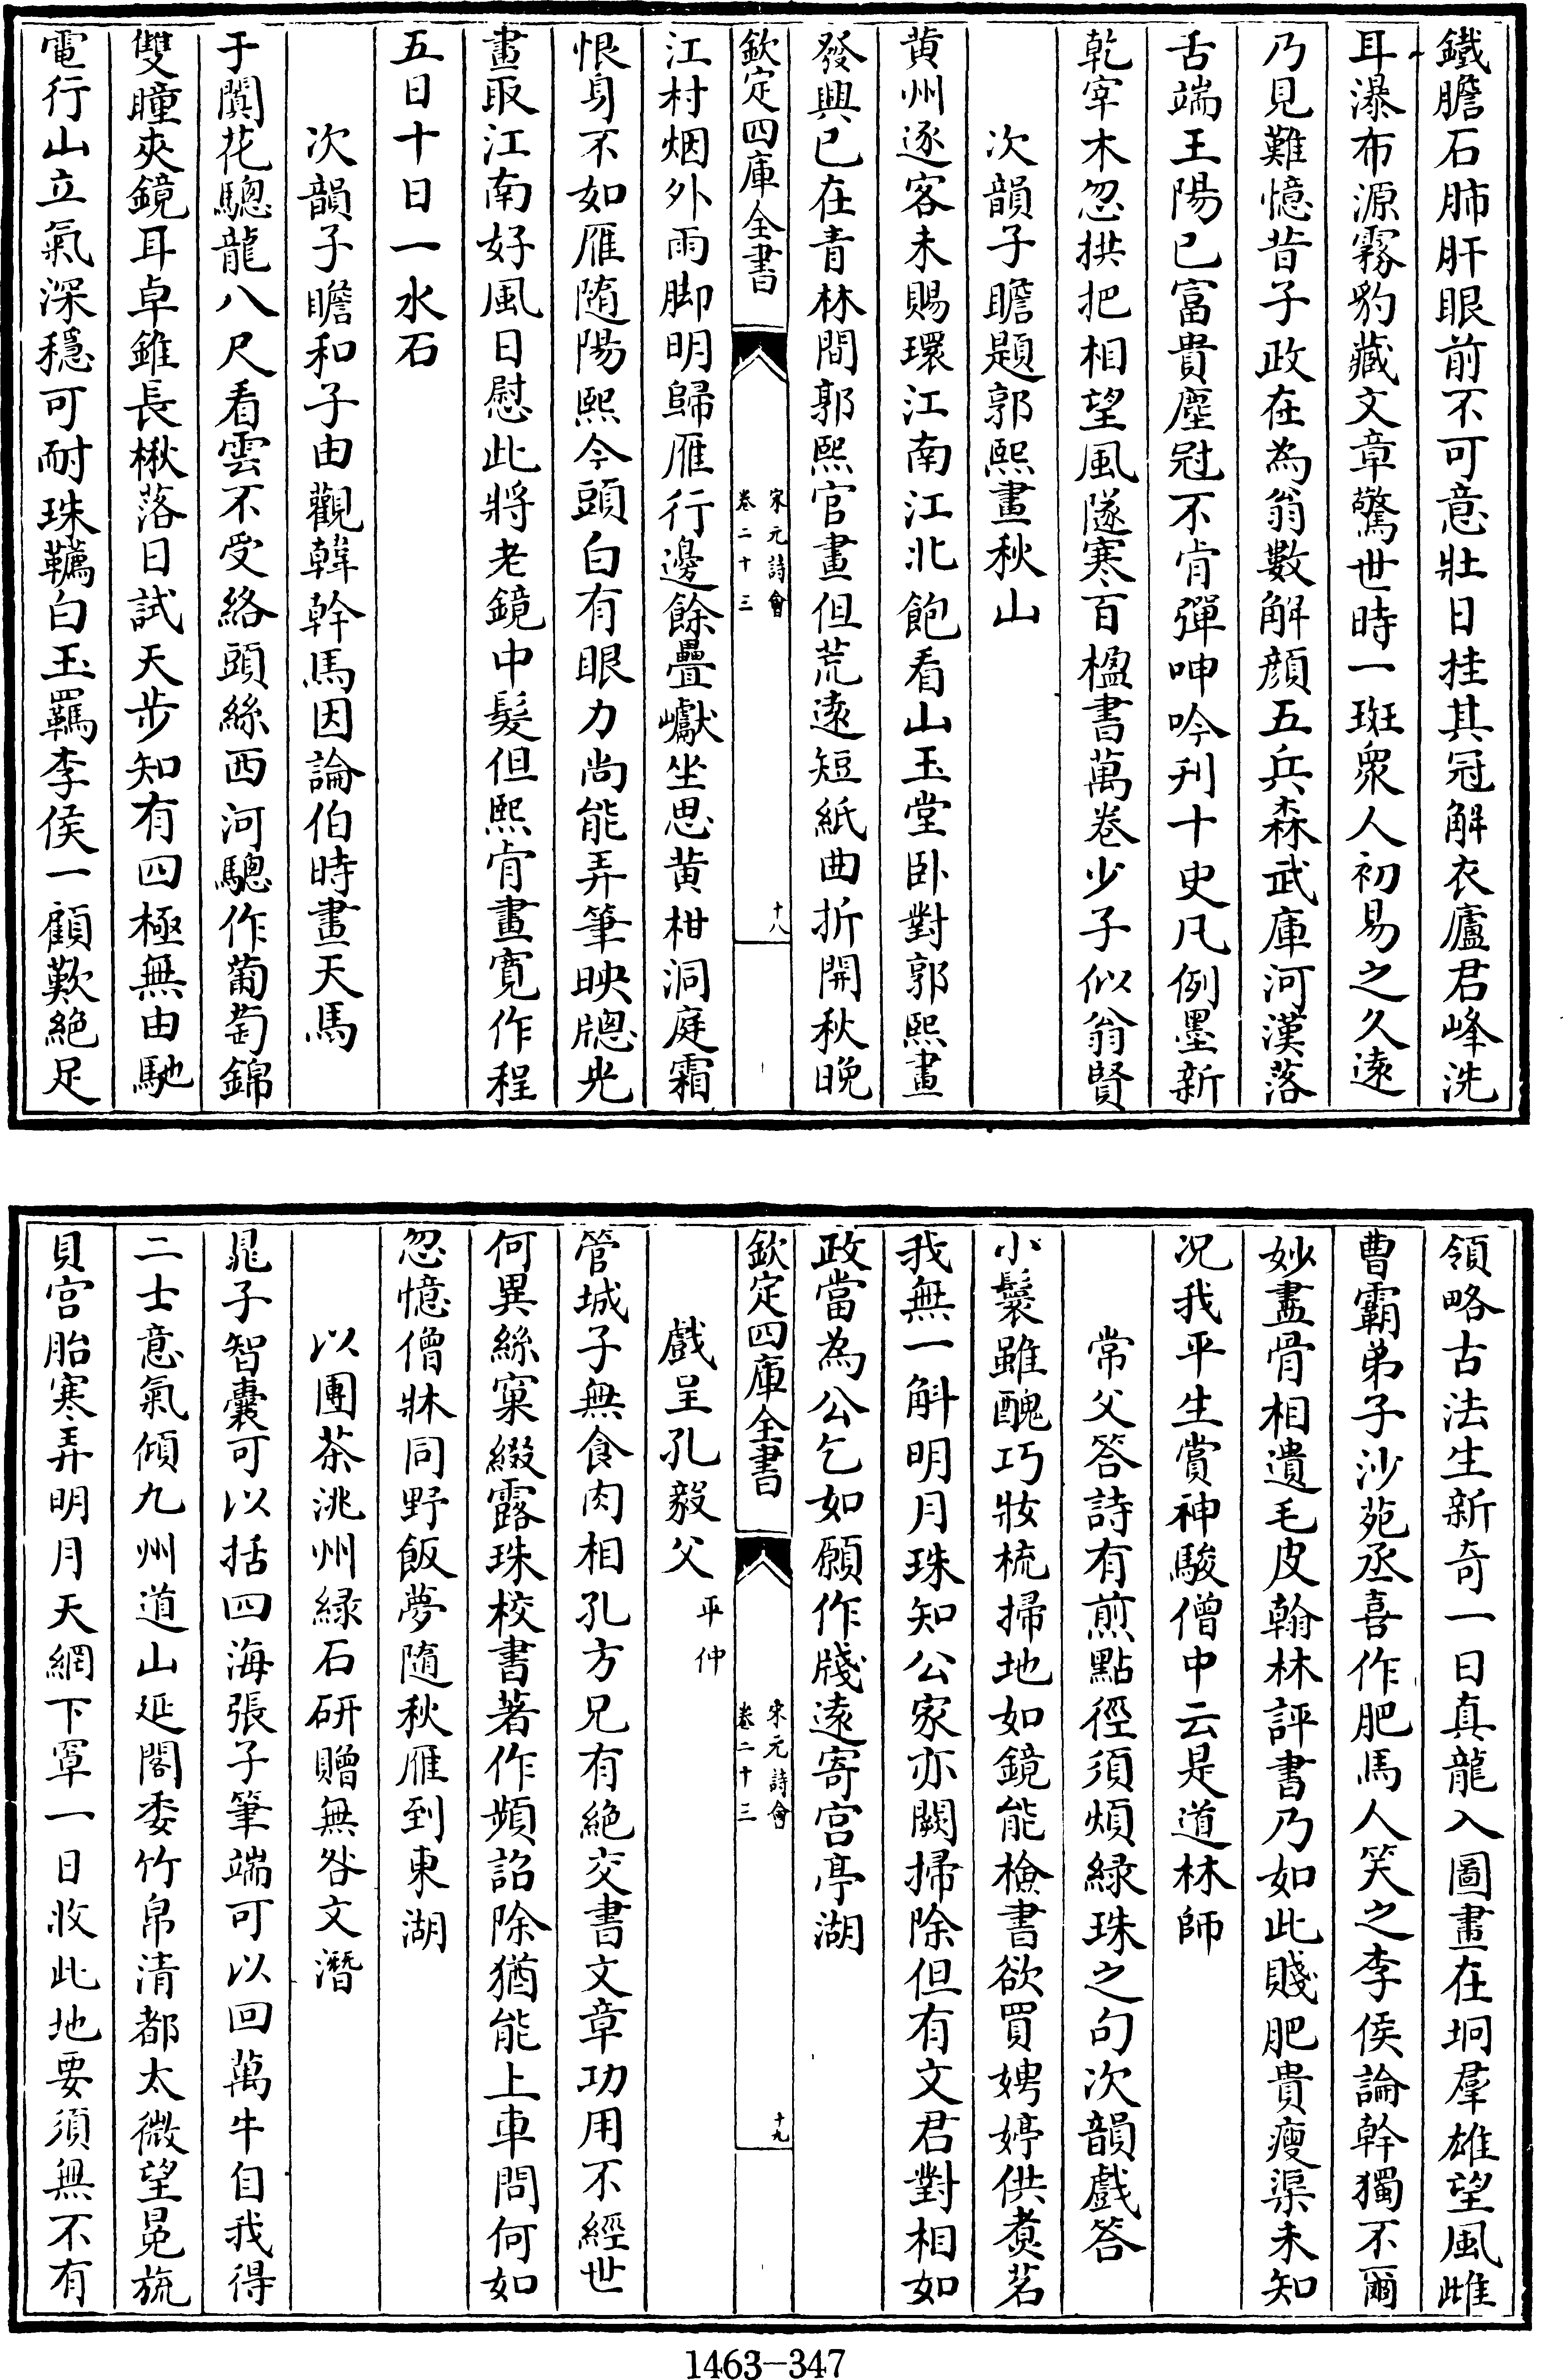 鐵膽石肺肝眼前不可意壯日挂其冠解衣廬君峰洗
耳瀑布源霧豹藏文章驚世時一斑衆人初易之久遠
乃見難憶昔子政在為翁數解顔五兵森武庫河漢落
舌端王陽已富貴塵冠不肯彈呻吟刊十史凡例墨新
乾宰木忽拱把相望風隧寒百楹書萬卷少子似翁賢
次韻子瞻題郭熙畫秋山
黄州逐客未賜環江南江北飽看山玉堂卧對郭熙畫
發興已在青林間郭熙官畫但荒遠短紙曲折開秋晚
欽定四庫全書
宋元詩會
卷二十三
十八
江村烟外雨脚明歸雁行邊餘疊巘坐思黄柑洞庭霜
恨身不如雁随陽熙今頭白有眼力尚能弄筆映牕光
畫取江南好風日慰此將老鏡中髮但熙肯畫寛作程
五日十日一水石
次韻子瞻和子由觀韓幹馬因論伯時畫天馬
于闐花驄龍八尺看雲不受絡頭絲西河驄作葡萄錦
雙瞳夾鏡耳卓錐長楸落日試天步知有四極無由馳
電行山立氣深穩可耐珠韉白玉羈李侯一顧歎絶足
領略古法生新奇一日真龍入圖畫在坰羣雄望風雌
曹霸弟子沙苑丞喜作肥馬人笑之李侯論幹獨不爾
妙畫骨相遺毛皮翰林評書乃如此賤肥貴瘦渠未知
况我平生賞神駿僧中云是道林師
常父答詩有煎點徑須煩緑珠之句次韻戲答
小鬟雖醜巧妝梳掃地如鏡能檢書欲買娉婷供煮茗
我無一斛明月珠知公家亦闕掃除但有文君對相如
政當為公乞如願作牋遠寄宫亭湖
欽定四庫全書
宋元詩會
卷二十三
十九
戲呈孔毅父平仲
管城子無食肉相孔方兄有絶交書文章功用不經世
何異絲窠綴露珠校書著作頻詔除猶能上車問何如
忽憶僧牀同野飯夢随秋雁到東湖
以團茶洮州緑石研贈無咎文潛
晁子智囊可以括四海張子筆端可以回萬牛自我得
二士意氣傾九州道山延閣委竹帛清都太微望冕旒
貝宫胎寒弄明月天網下罩一日收此地要須無不有
1463-347